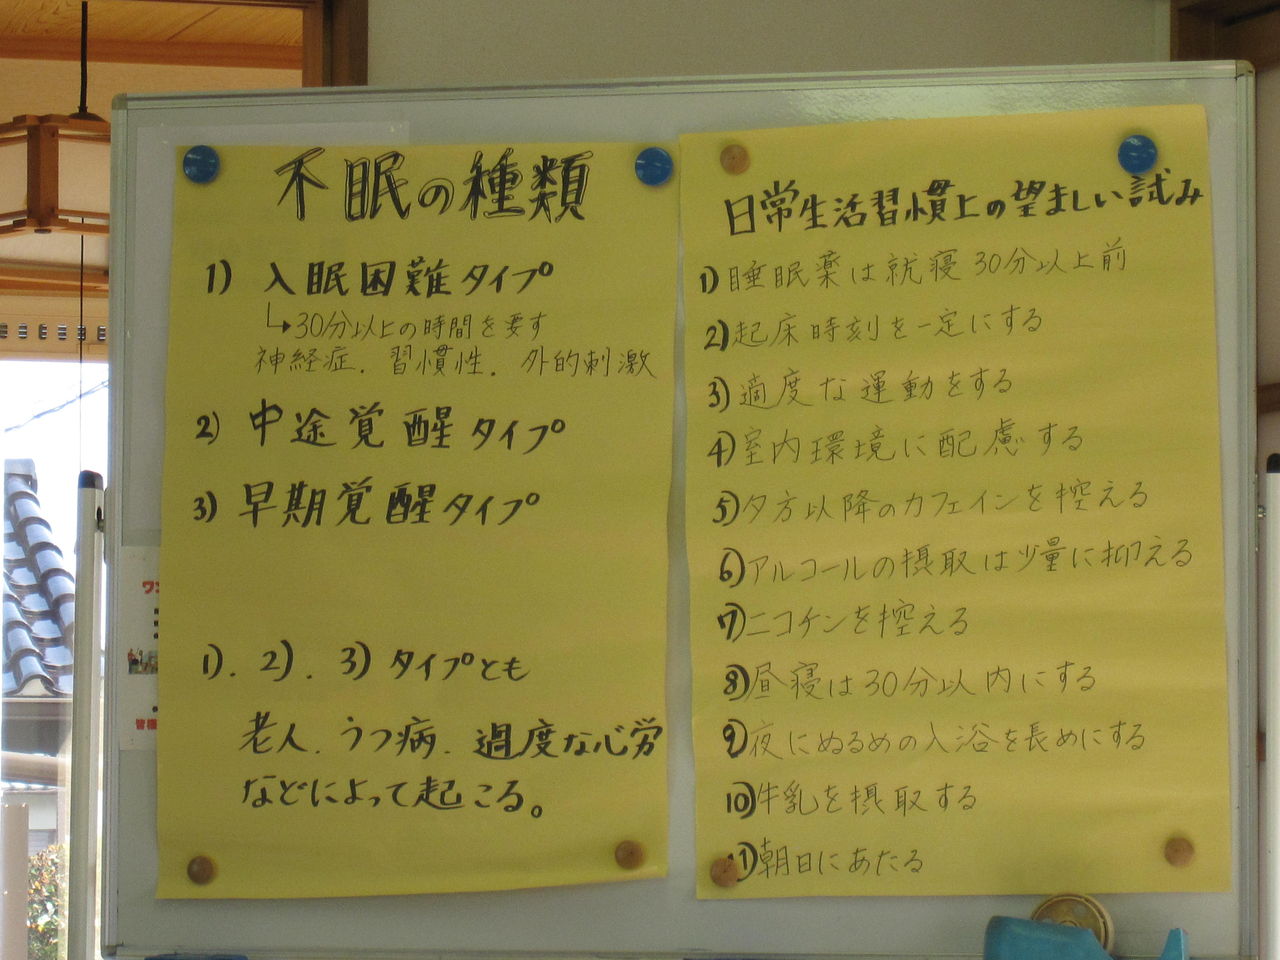 不眠の種類
1) 入眠困難タイプ
↳30分以上の時間を要す
神経症．習慣性．外的刺激
2) 中途覚醒タイプ
3) 早期覚醒タイプ
1)．2)．3)タイプとも
老人．うつ病．過度な心労
などによって起こる。
日常生活習慣上の望ましい試み
1)睡眠薬は就寝30分以上前
2)起床時刻を一定にする
3)適度な運動をする
4)室内環境に配慮する
5)夕方以降のカフェインを控える
6)アルコールの摂取は少量に抑える
7)ニコチンを控える
8)昼寝は30分以内にする
9)夜にぬるめの入浴を長めにする
10)牛乳を摂取する
11)朝日にあたる